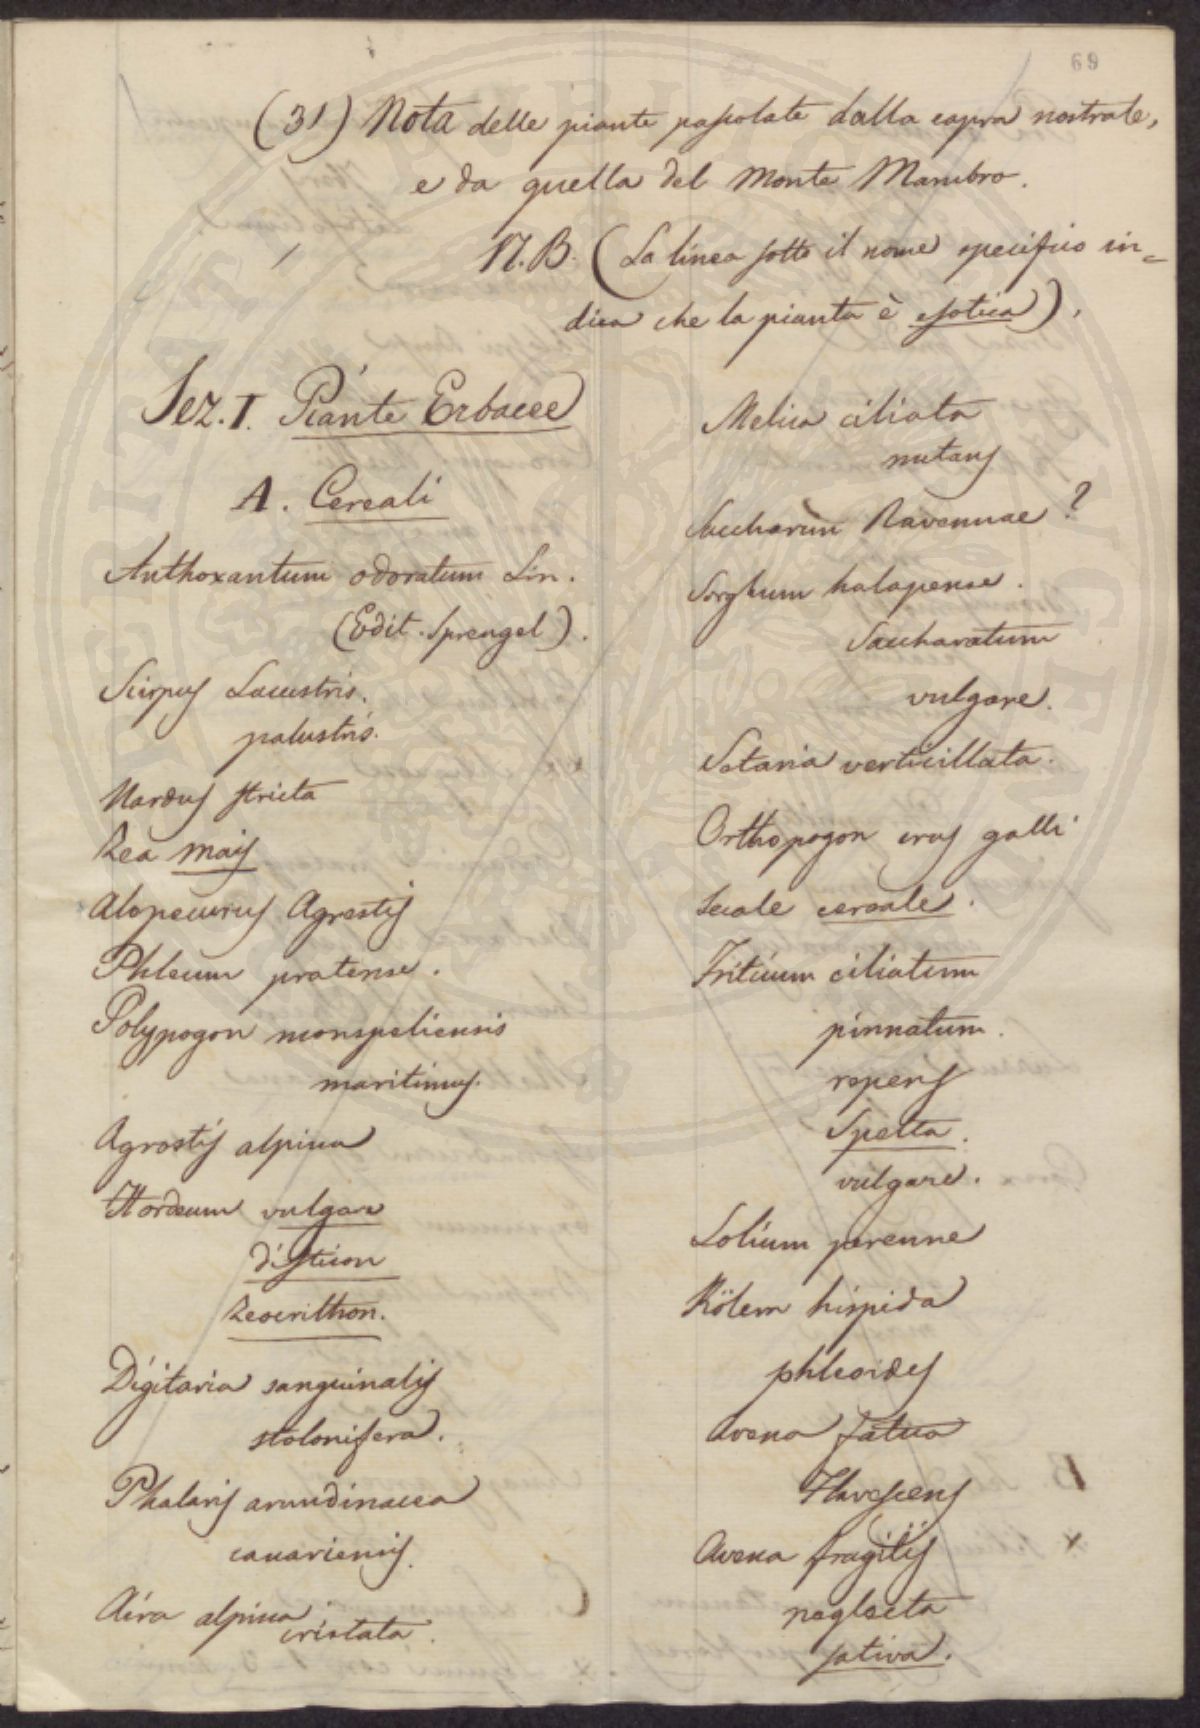 69
(31) Nota delle piante pascolate dalla capra nostrale,
e da quella del Monte Mambro.
N.B. (La linea sotto il nome specifico in=
dica che la pianta è esotica).
Sez. I. Piante Erbacee
A. Cereali
Anthoxantum odoratum Lin.
(Edit. Sprengel).
Scirpus Lacustris.
palustris.
Nardus stricta
Zea mais
Alopecurus Agrestis
Phleum pratense.
Polypogon monspeliensis
maritimus.
Agrostis alpina
Hordeum vulgare
disticon
Zeocrithon.
Digitaria sanguinalis
stolonifera.
Phalaris arundinacea
canariensis.
Aira alpina
cristata.
Melica ciliata
nutans
Saccharum Ravennae ?
Sorghum halapense.
Saccharatum
vulgare.
Setaria verticillata.
Orthopogon crus galli
Secale cereale.
Triticum ciliatum
pinnatum.
repens
Spelta.
vulgare.
Lolium perenne
Kölern hispida
phleoides
Avena fatua
Flavescens
Avena fragilis
neglecta
sativa.